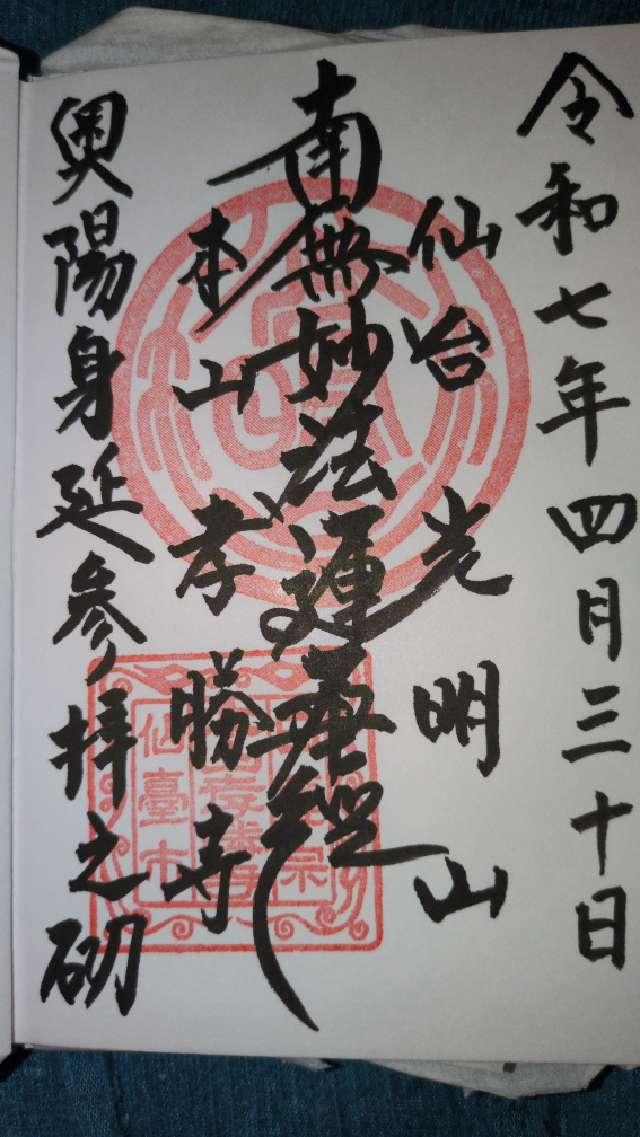 令和七年四月三十日
仙台 光明山
南無妙法蓮華経
本山 孝勝寺
奥陽身延参拝之砌
仙臺市